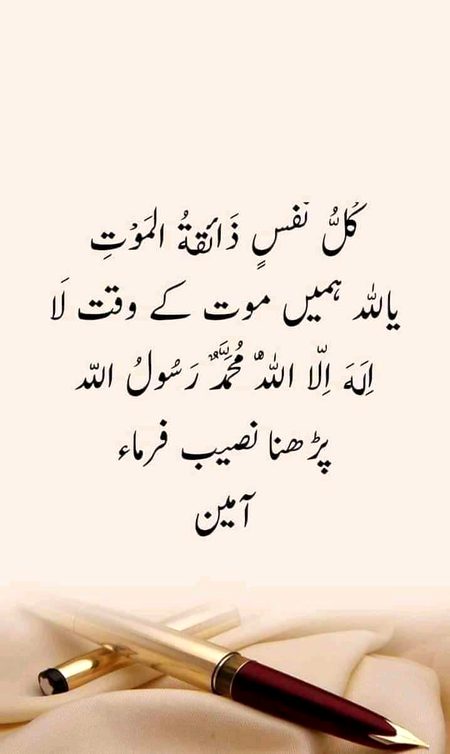 كُلُّ نَفسٍ ذَائقةُ المَوْتِ
یاللہ ہمیں موت کے وقت لَا
اِلٰهَ اِلّا اللہُ مُحَمَّدٌ رَسُولُ اللہ
پڑھنا نصیب فرماء
آمین